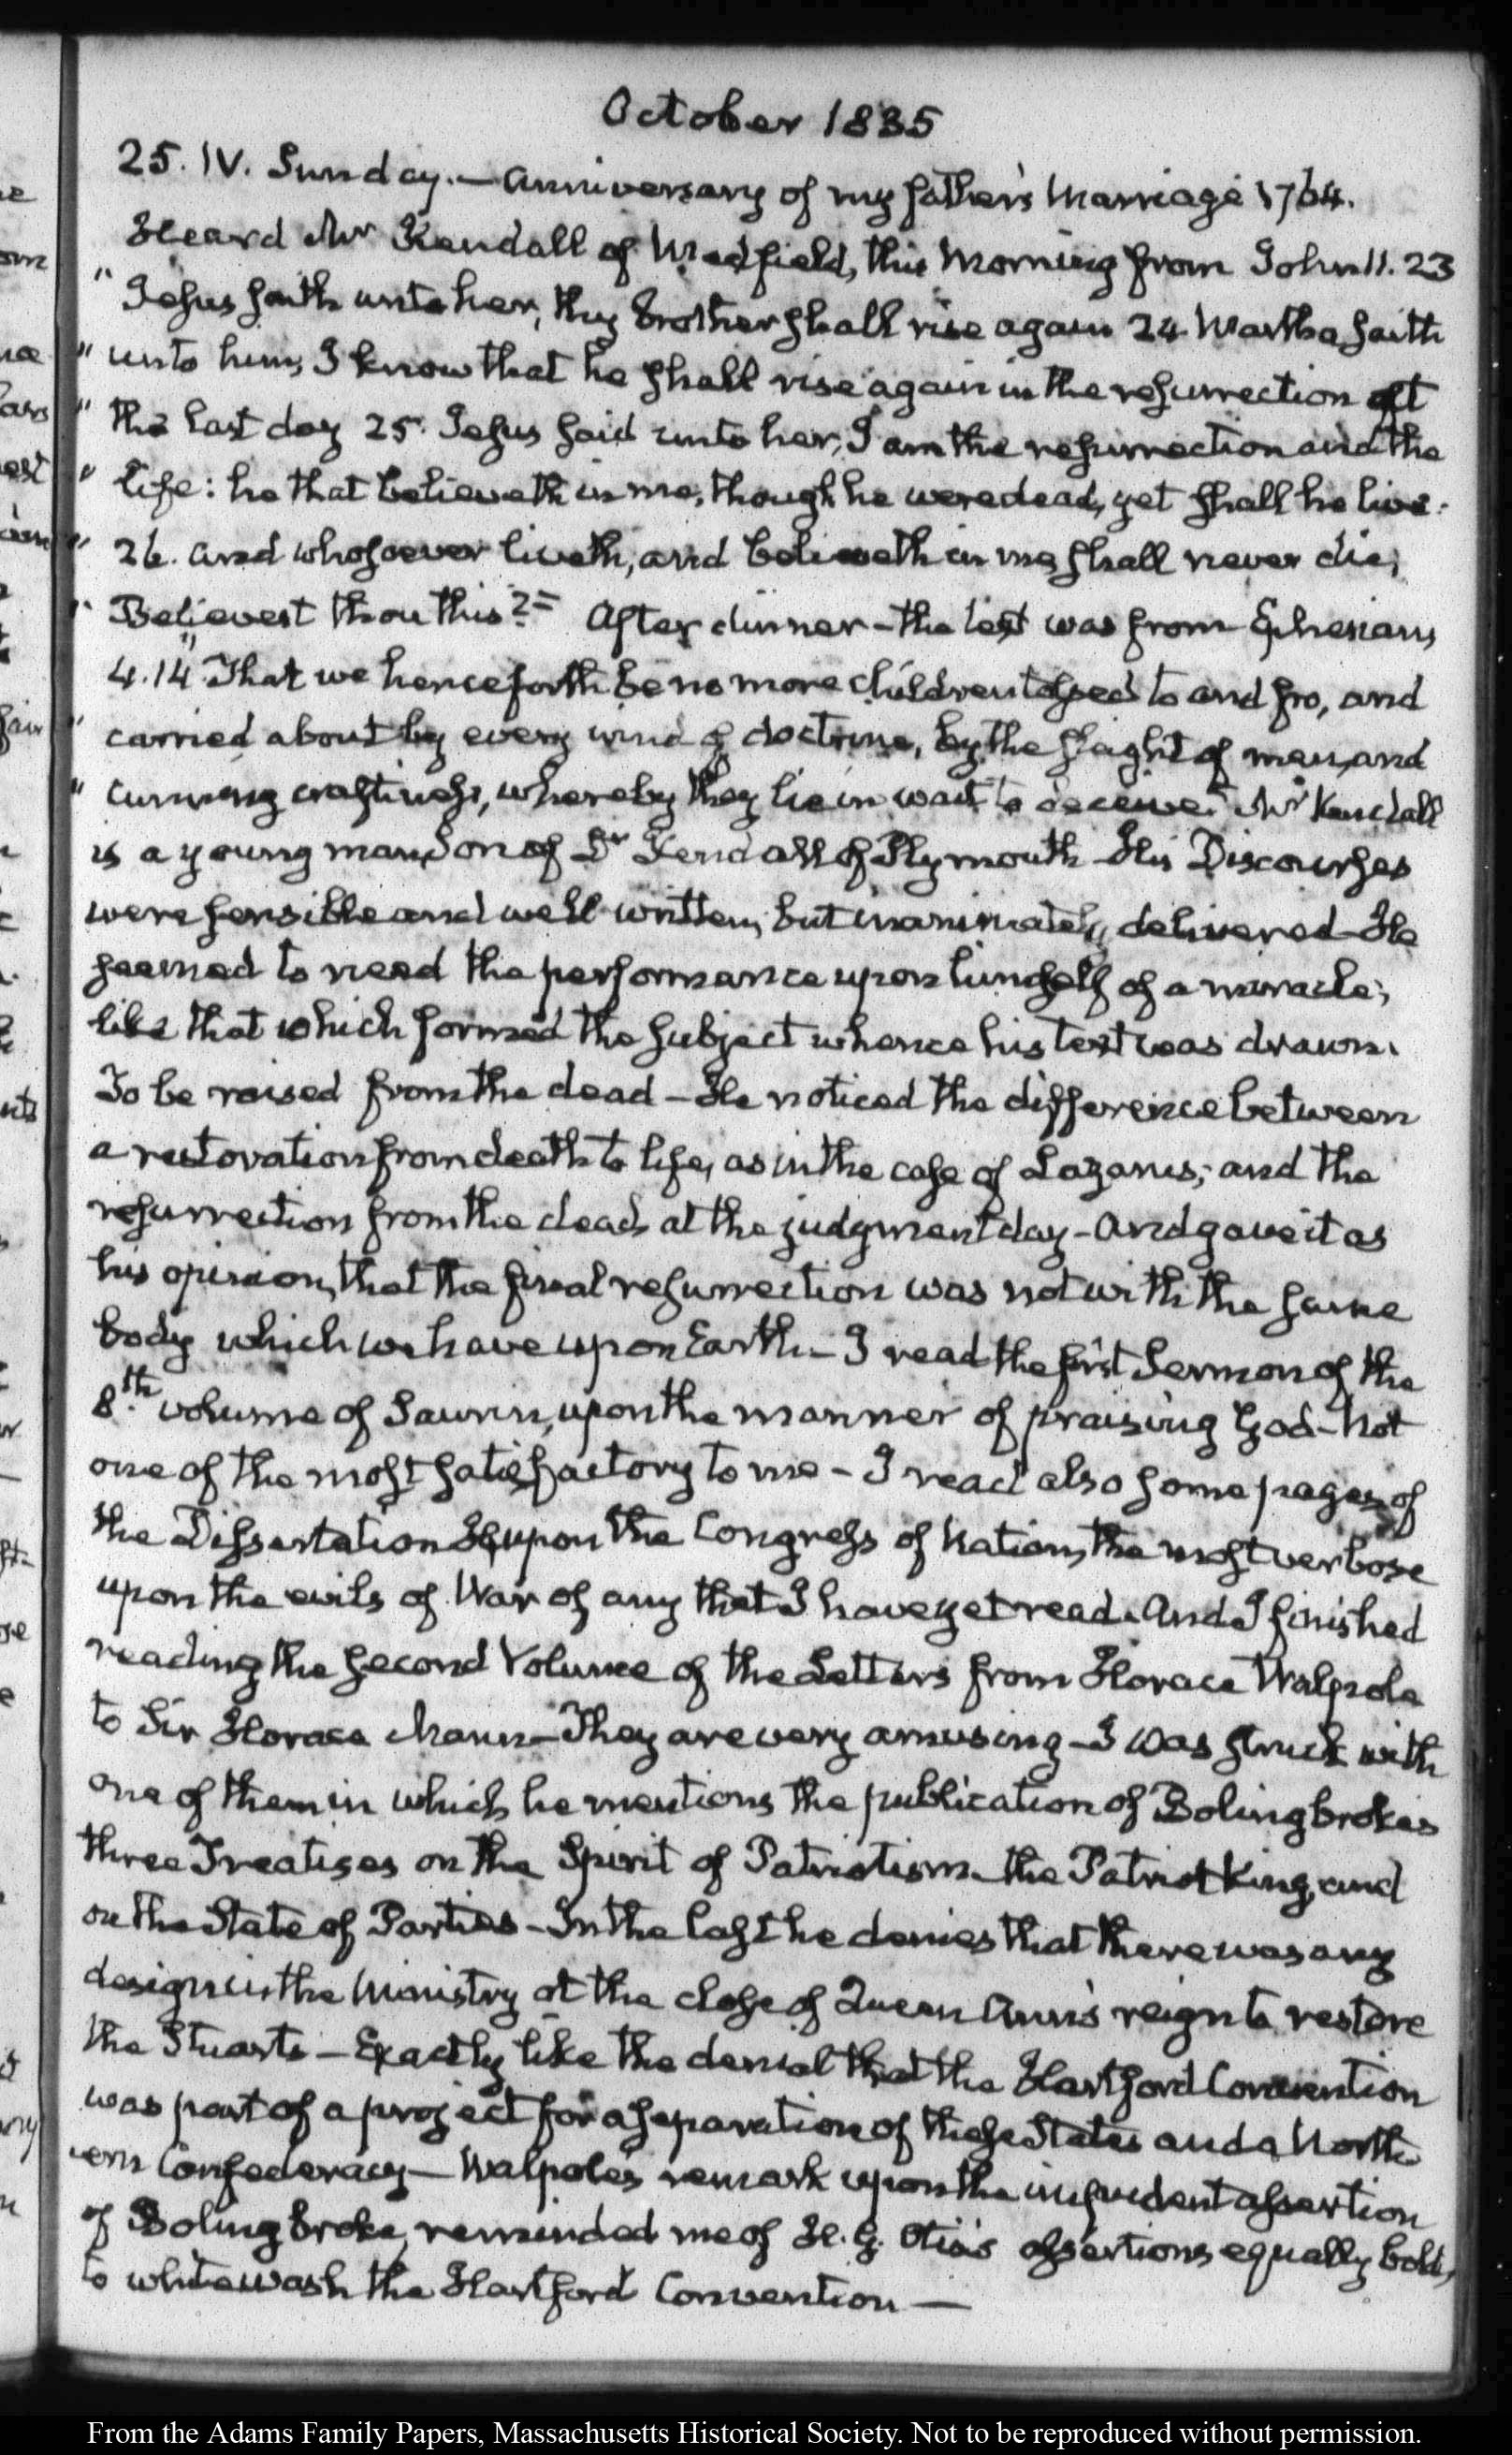 October 1835
25. IV. Sunday.— Anniversary of my father's Marriage 1764.
Heard Mr Kendall of Medfield, this Morning from John 11. 23
" Jesus saith unto her, thy brother shall rise again 24. Martha saith
" unto him, I know that he shall rise again in the resurrection at
" the last day 25. Jesus said unto her, I am the resurrection and the
" life: he that believeth in me, though he were dead, yet shall he live.
" 26. And whosoever liveth, and believeth in me, shall never die;
" Believest thou this?= After dinner—the text was from Ephesians
4. 14. "That we henceforth be no more children tossed to and fro, and
" carried about by every wind of doctrine, by the slaight of men, and
" cunning craftiness, whereby they lie in wait to deceive." Mr Kendall
is a young man, Son of Dr Kendall of Plymouth—His Discourses
were sensible and well written, but inanimately delivered—He
seemed to need the performance upon himself of a miracle,
like that which formed the subject whence his text was drawn.
To be raised from the dead—He noticed the difference between
a restoration from death to life, as in the case of Lazarus; and the
resurrection from the dead, at the judgment day—and gave it as
his opinion, that the final resurrection was not with the same
body which we have upon Earth—I read the first Sermon of the
8.th volume of Saurin, upon the manner of praising God—Not
one of the most satisfactory to me—I read also some pages of
the Dissertation upon the Congress of Nations, the most verbose
upon the evils of War of any that I have yet read. And I finished
reading the second Volume of the Letters from Horace Walpole
to Sir Horace Mann—They are very amusing—I was struck with
one of them in which he mentions the publication of Bolingbroke's
three Treatises on the Spirit of Patriotism—the Patriot King, and
on the State of Parties—In the last he denies that there was any
design in the Ministry at the close of Queen Ann's reign to restore
the Stuarts—Exactly like the denial that the Hartford Convention
was part of a project for a separation of these States and a North-
ern Confederacy—Walpole's remark upon the impudent assertion
of Bolingbroke, reminded me of H. G. Otis's assertions equally bold,
to whitewash the Hartford Convention—
From the Adams Family Papers, Massachusetts Historical Society. Not to be reproduced without permission.